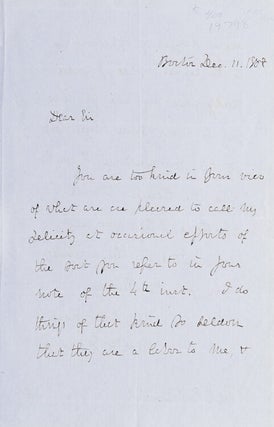 Boston Dec. 11. 1858
Dear Sir
You are too kind in your view
of what you are pleased to call my
felicity at occasional efforts of
the sort you refer to in your
note of the 4th inst. I do
things of that kind so seldom
that they are a labor to me, &